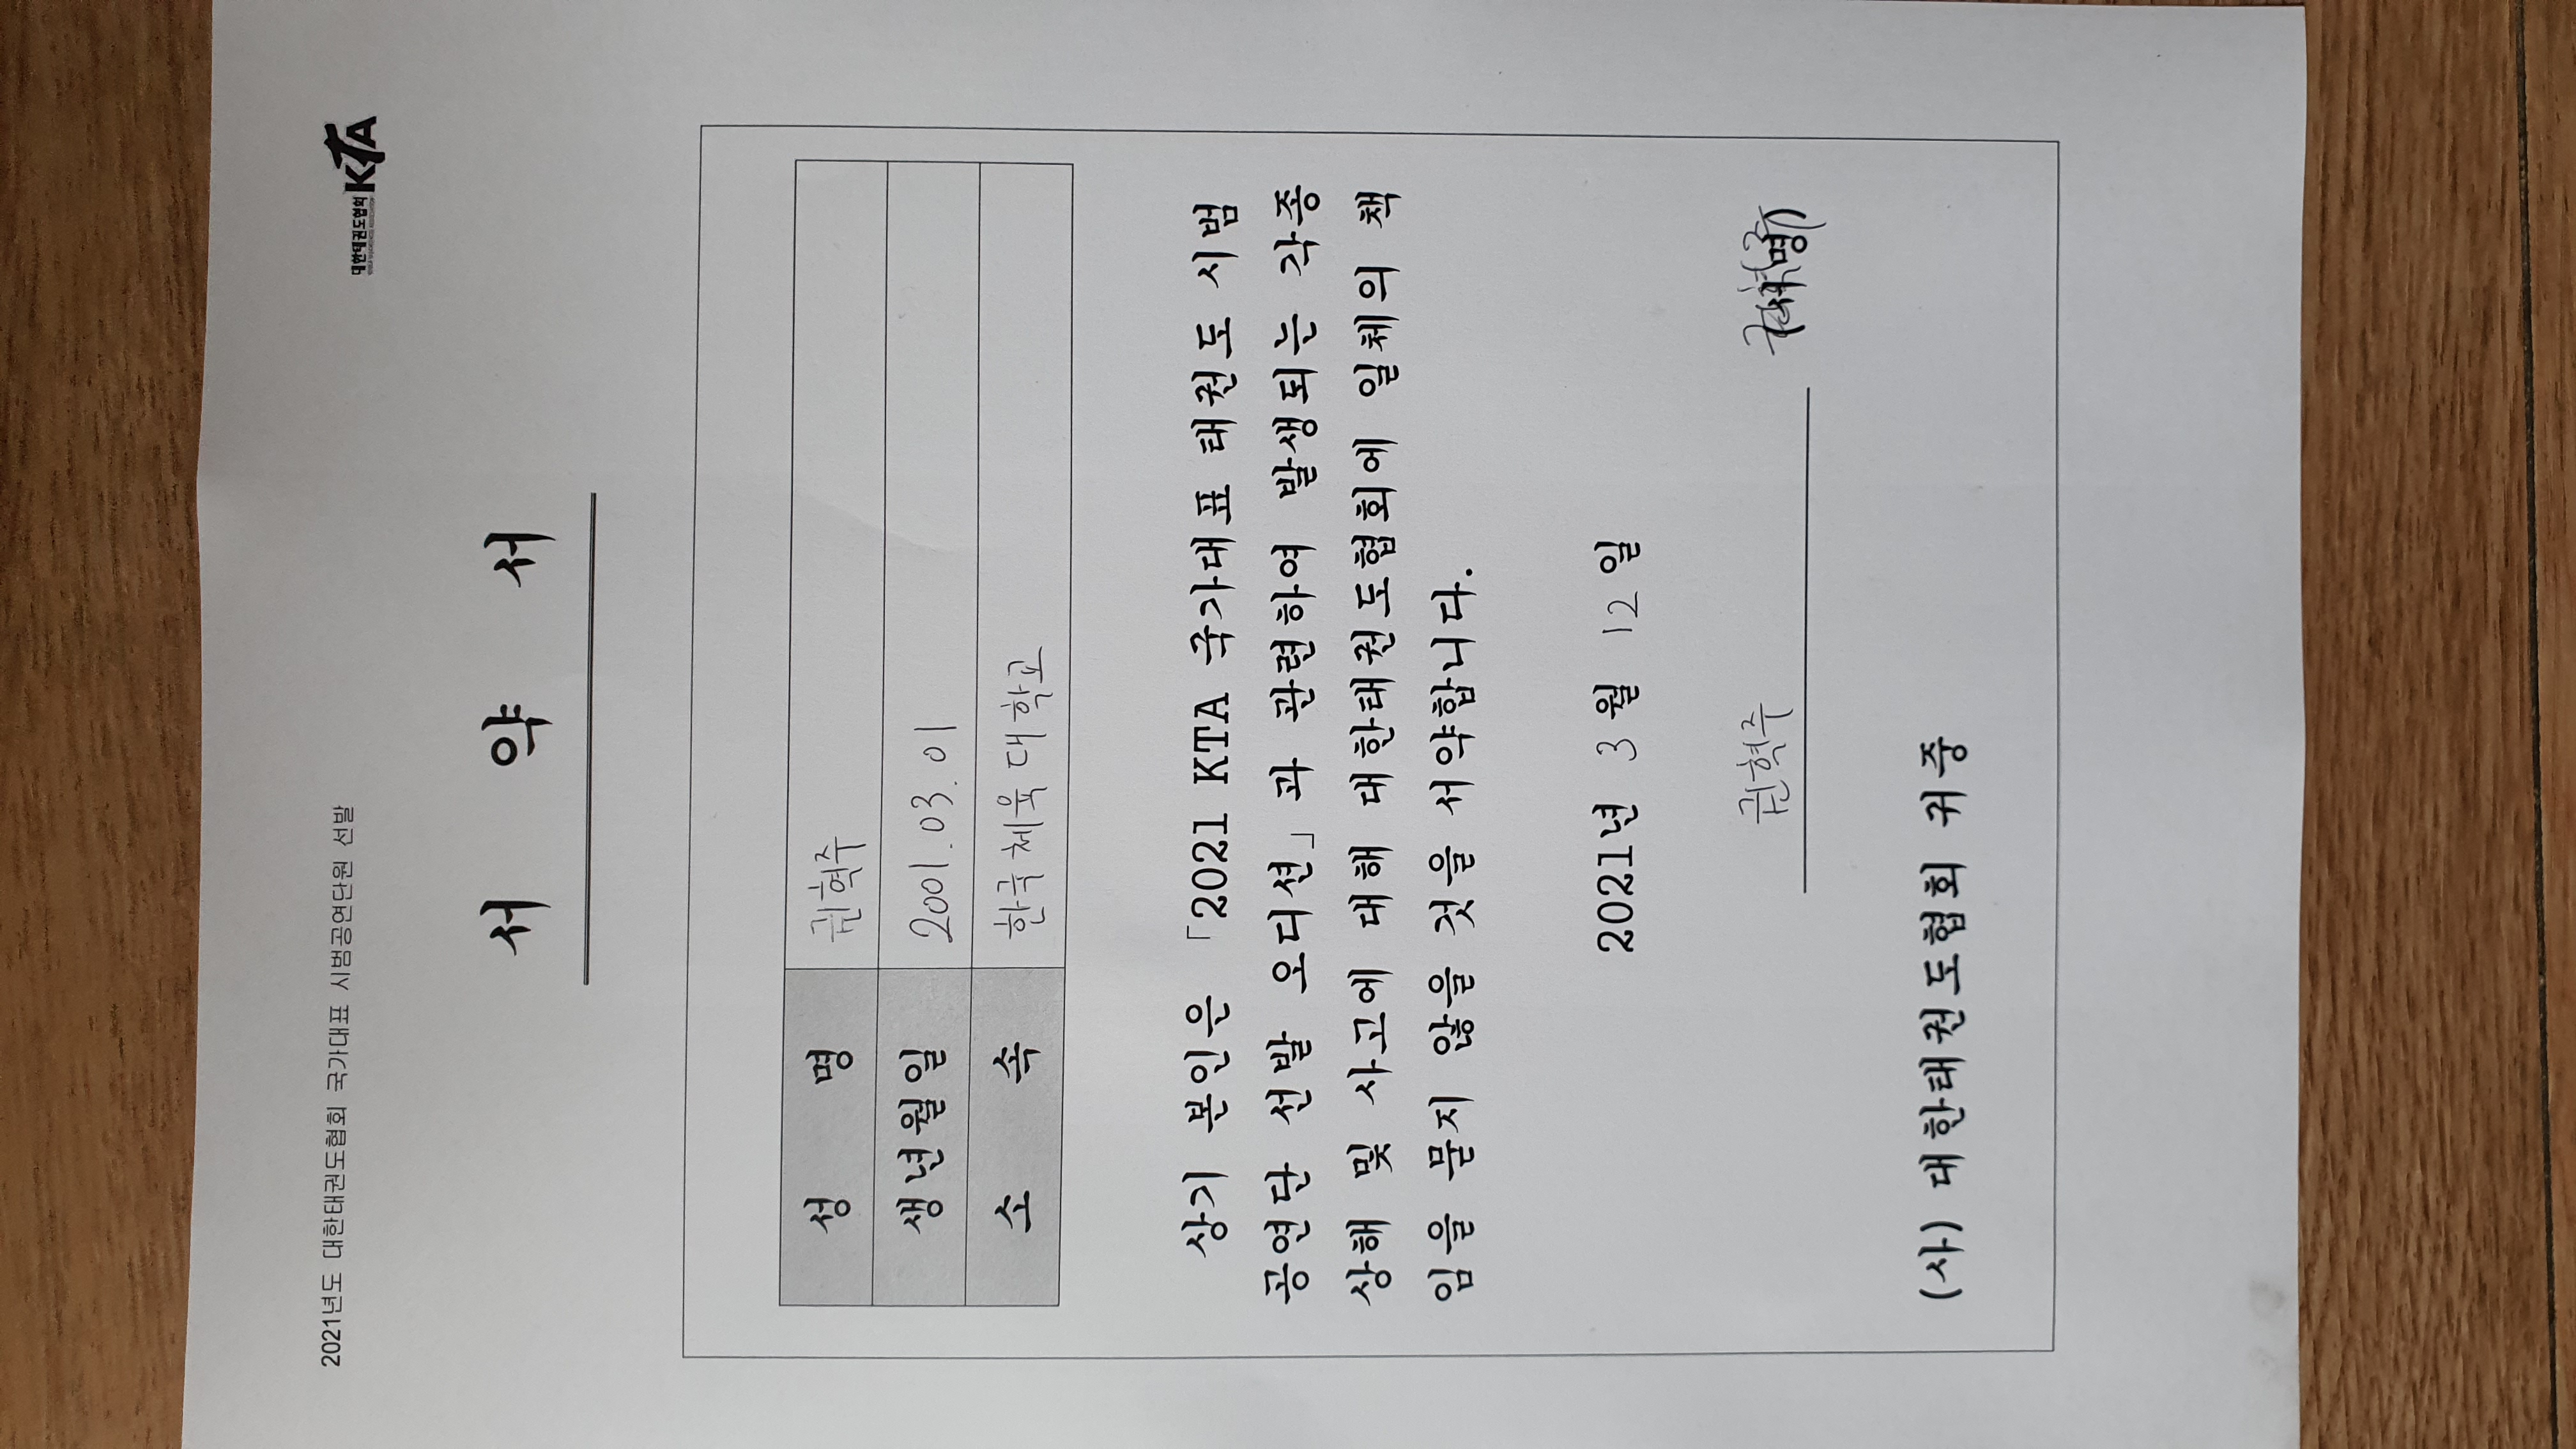 2021년도 대한태권도협회 국가대표 시범공연단원 선발
대한태권도협회 KTA
서 약 서
성 명 권혁주
생년월일 2001.03.01
소 속 한국체육대학교
상기 본인은 「2021 KTA 국가대표 태권도 시범
공연단 선발 오디션」과 관련하여 발생되는 각종
상해 및 사고에 대해 대한태권도협회에 일체의 책
임을 묻지 않을 것을 서약합니다.
2021년 3월 12일
권혁주 (서명)
(사)대한태권도협회 귀중